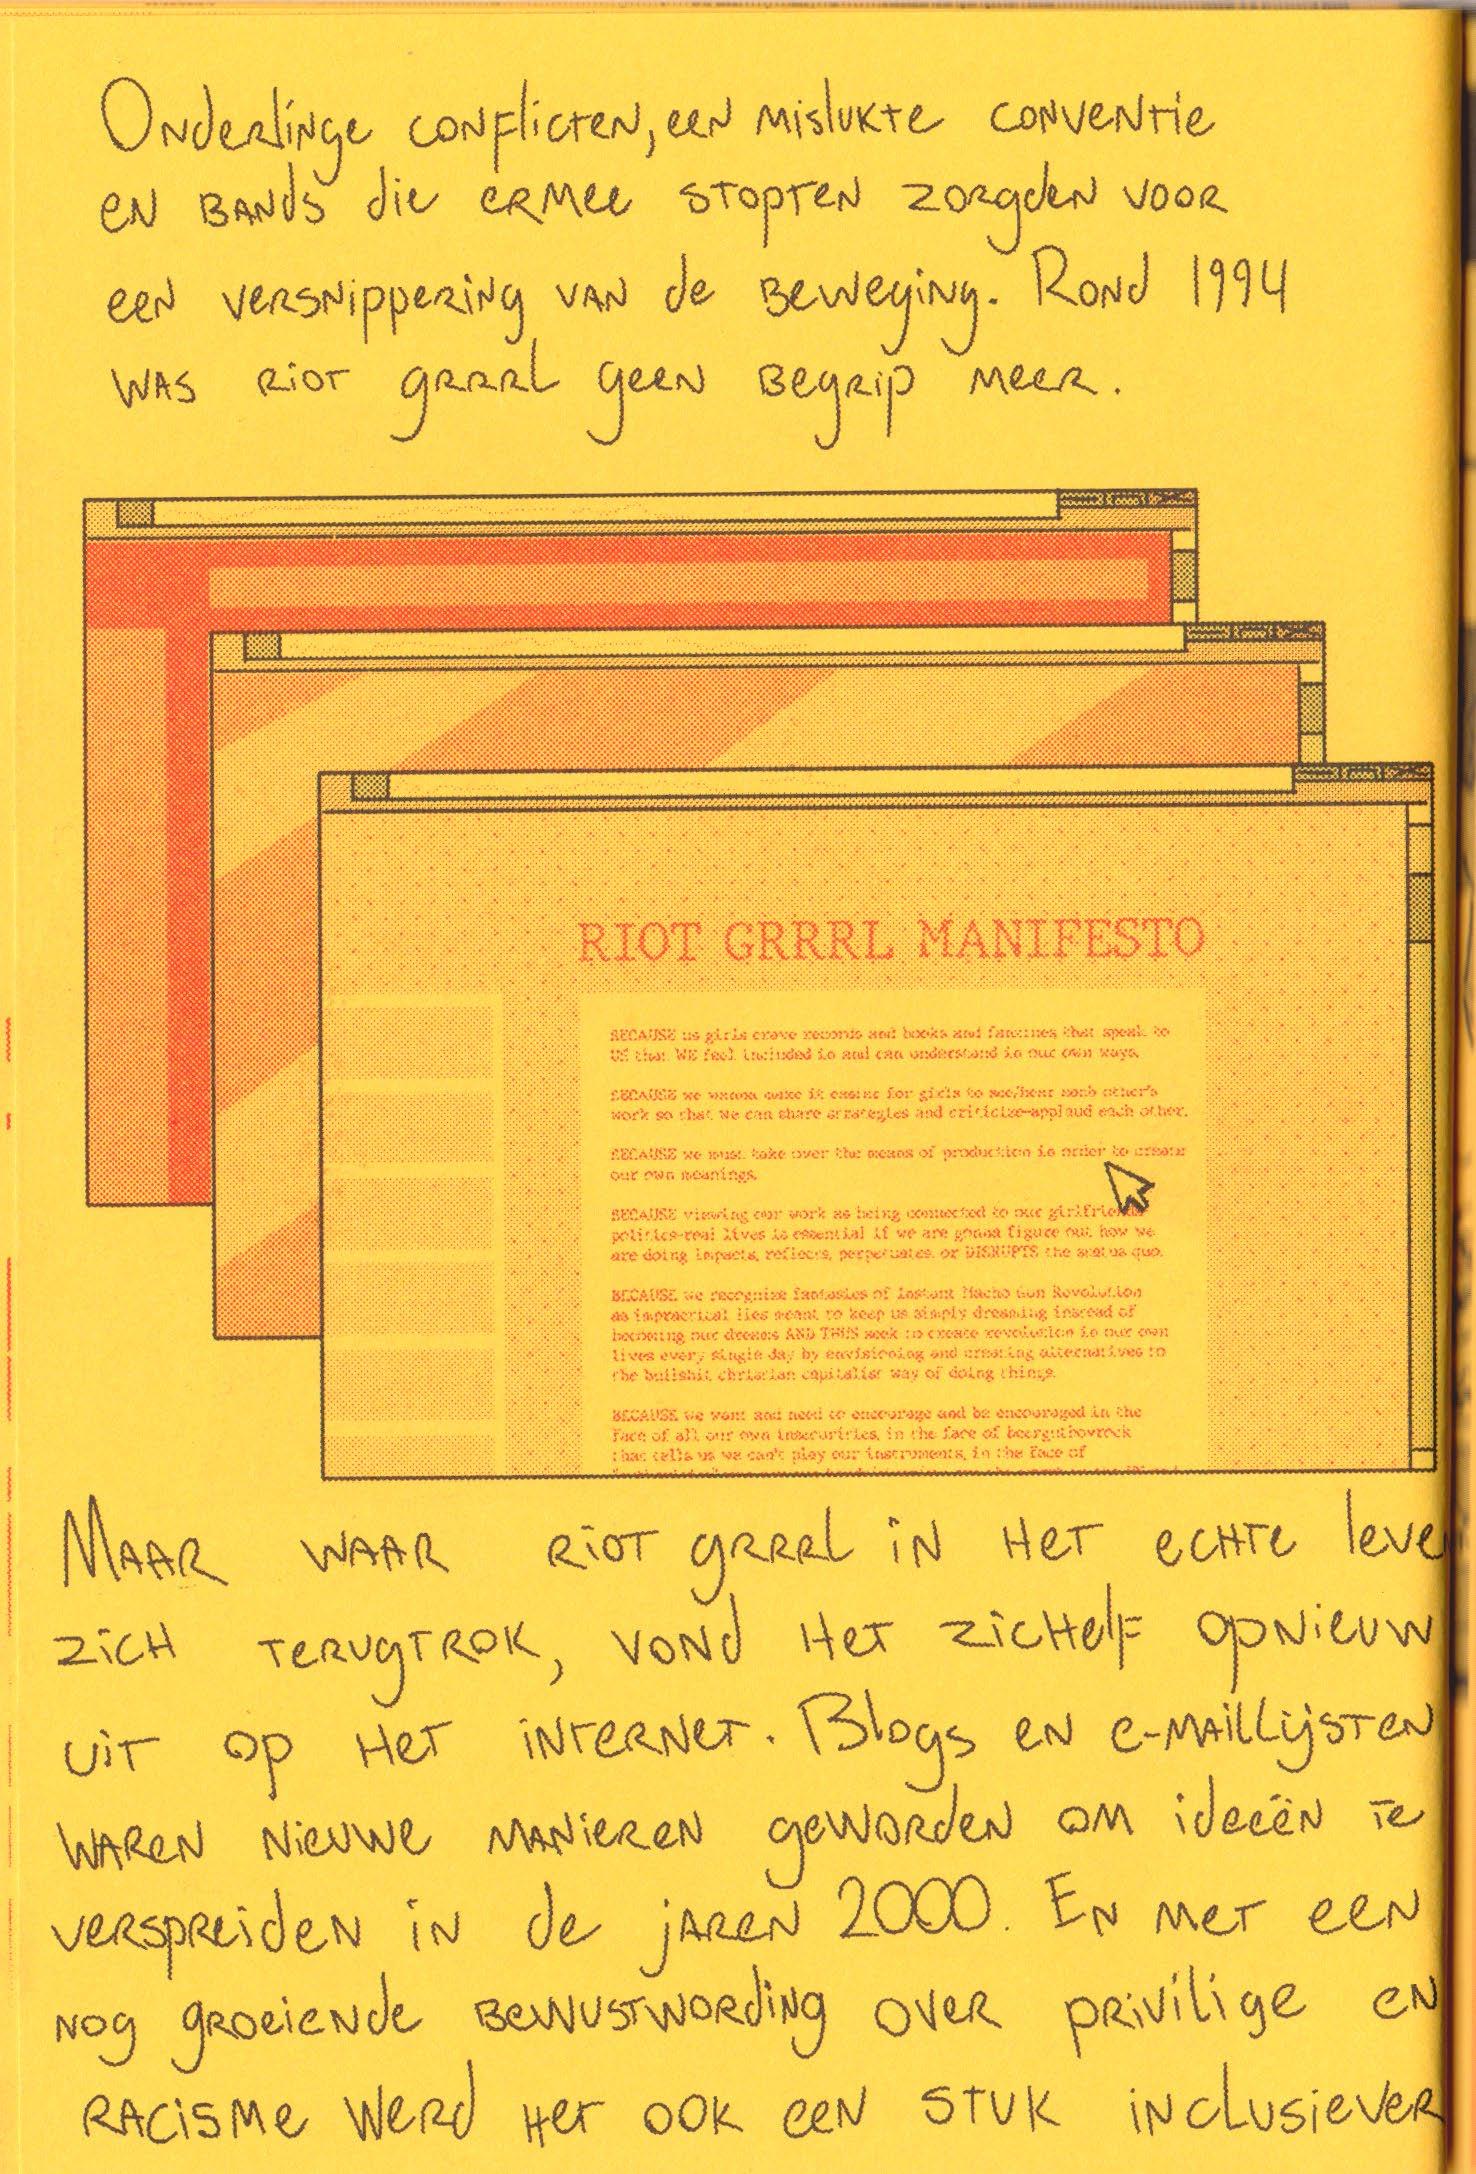 Onderlinge conflicten, een mislukte conventie
en bands die ermee stopten zorgden voor
een versnippering van de beweging. Rond 1994
was riot grrrl geen begrip meer.
RIOT GRRRL MANIFESTO
BECAUSE us girls crave records and books and fanzines that speak to
US that WE feel included in and can understand in our own ways.
BECAUSE we wanna make it easier for girls to see/hear each other's
work so that we can share strategies and criticize-applaud each other.
BECAUSE we must take over the means of production in order to create
our own meanings.
BECAUSE viewing our work as being connected to our girlfriends
politics-real lives is essential if we are gonna figure out how we
are doing impacts, reflects, perpetuates, or DISRUPTS the status quo.
BECAUSE we recognize fantasies of Instant Macho Gun Revolution
as impractical lies meant to keep us simply dreaming instead of
becoming our dreams AND THUS seek to create revolution in our own
lives every single day by envisioning and creating alternatives to
the bullshit christian capitalist way of doing things.
BECAUSE we want and need to encourage and be encouraged in the
face of all our own insecurities, in the face of beergutboyrock
that tells us we can't play our instruments, in the face of
Maar waar riot grrrl in het echte leve
zich terugtrok, vond het zichelf opnieuw
uit op het internet. Blogs en e-maillijsten
waren nieuwe manieren geworden om ideeën te
verspreiden in de jaren 2000. En met een
nog groeiende bewustwording over privilige en
racisme werd het ook een stuk inclusiever